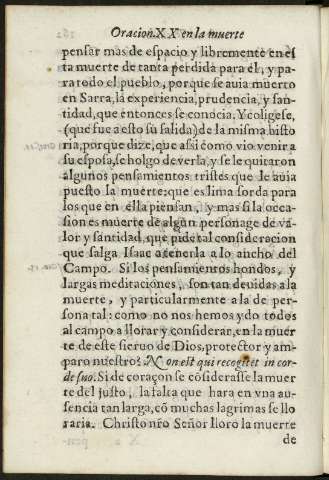 Oracion.XX en la muerte
pensar mas de espacio y libremente en es
ta muerte de tanta perdida para èl, y pa-
ra todo el pueblo, porque se auia muerto
en Sarra, la experiencia, prudencia, y san-
tidad, que entonces se conocia. Y coligese,
(que fue a esto su salida) de la misma histo
ria, porque dize, que assi como vio venir a
su esposa, se holgo de verla, y se le quitaron
algunos pensamientos tristes que le auia
puesto la muerte: que es lima sorda para
los que en ella piensan, y mas si la oca-
sion es muerte de algun personage de va-
lor y santidad, que pide tal consideracion
que salga Isaac a tenerla a lo ancho del
Campo. Si los pensamientos hondos, y
largas meditaciones, son tan deuidas a la
muerte, y particularmente a la de per-
sona tal: como no nos hemos ydo todos
al campo a llorar y considerar, en la muer
te de este sieruo de Dios, protector y am-
paro nuestro? Non est qui recogitet in cor-
de suo. Si de coraçon se cõsiderasse la muer
te del justo, la falta que hara en vna au-
sencia tan larga, cõ muchas lagrimas se llo
raria. Christo nr̃o Señor llorò la muerte
de